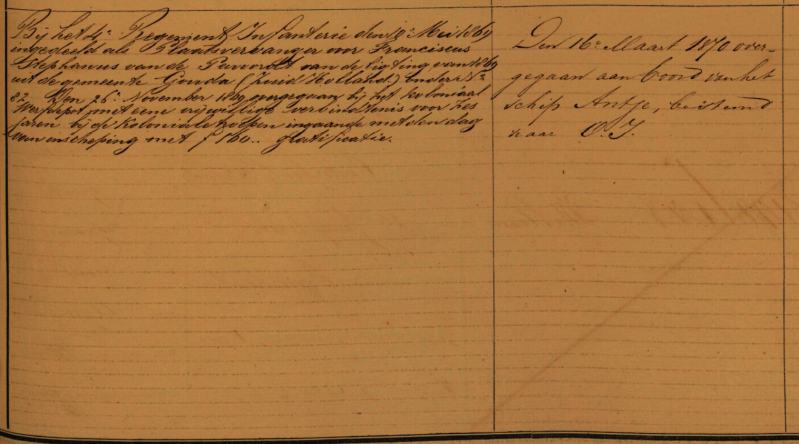 Bij het 4e Regement Infanterie den 10e Mei 1869
ingedeeld als Plaatsvervanger voor Franciscus
Stephanus van de van de ligting van 1869
uit de gemeente Gouda (Zuid Holland) onder No
82. Den 25e November 1869 overgegaan bij het Koloniaal
Werfdepot met eene vrijwillige verbindtenis voor zes
jaren bij de Koloniale troepen ingaande met den dag
van inscheping met f 160.. gratificatie.
Den 16e Maart 1870 over-
gegaan aan boord van het
schip Antje, bestemd
naar O. I.